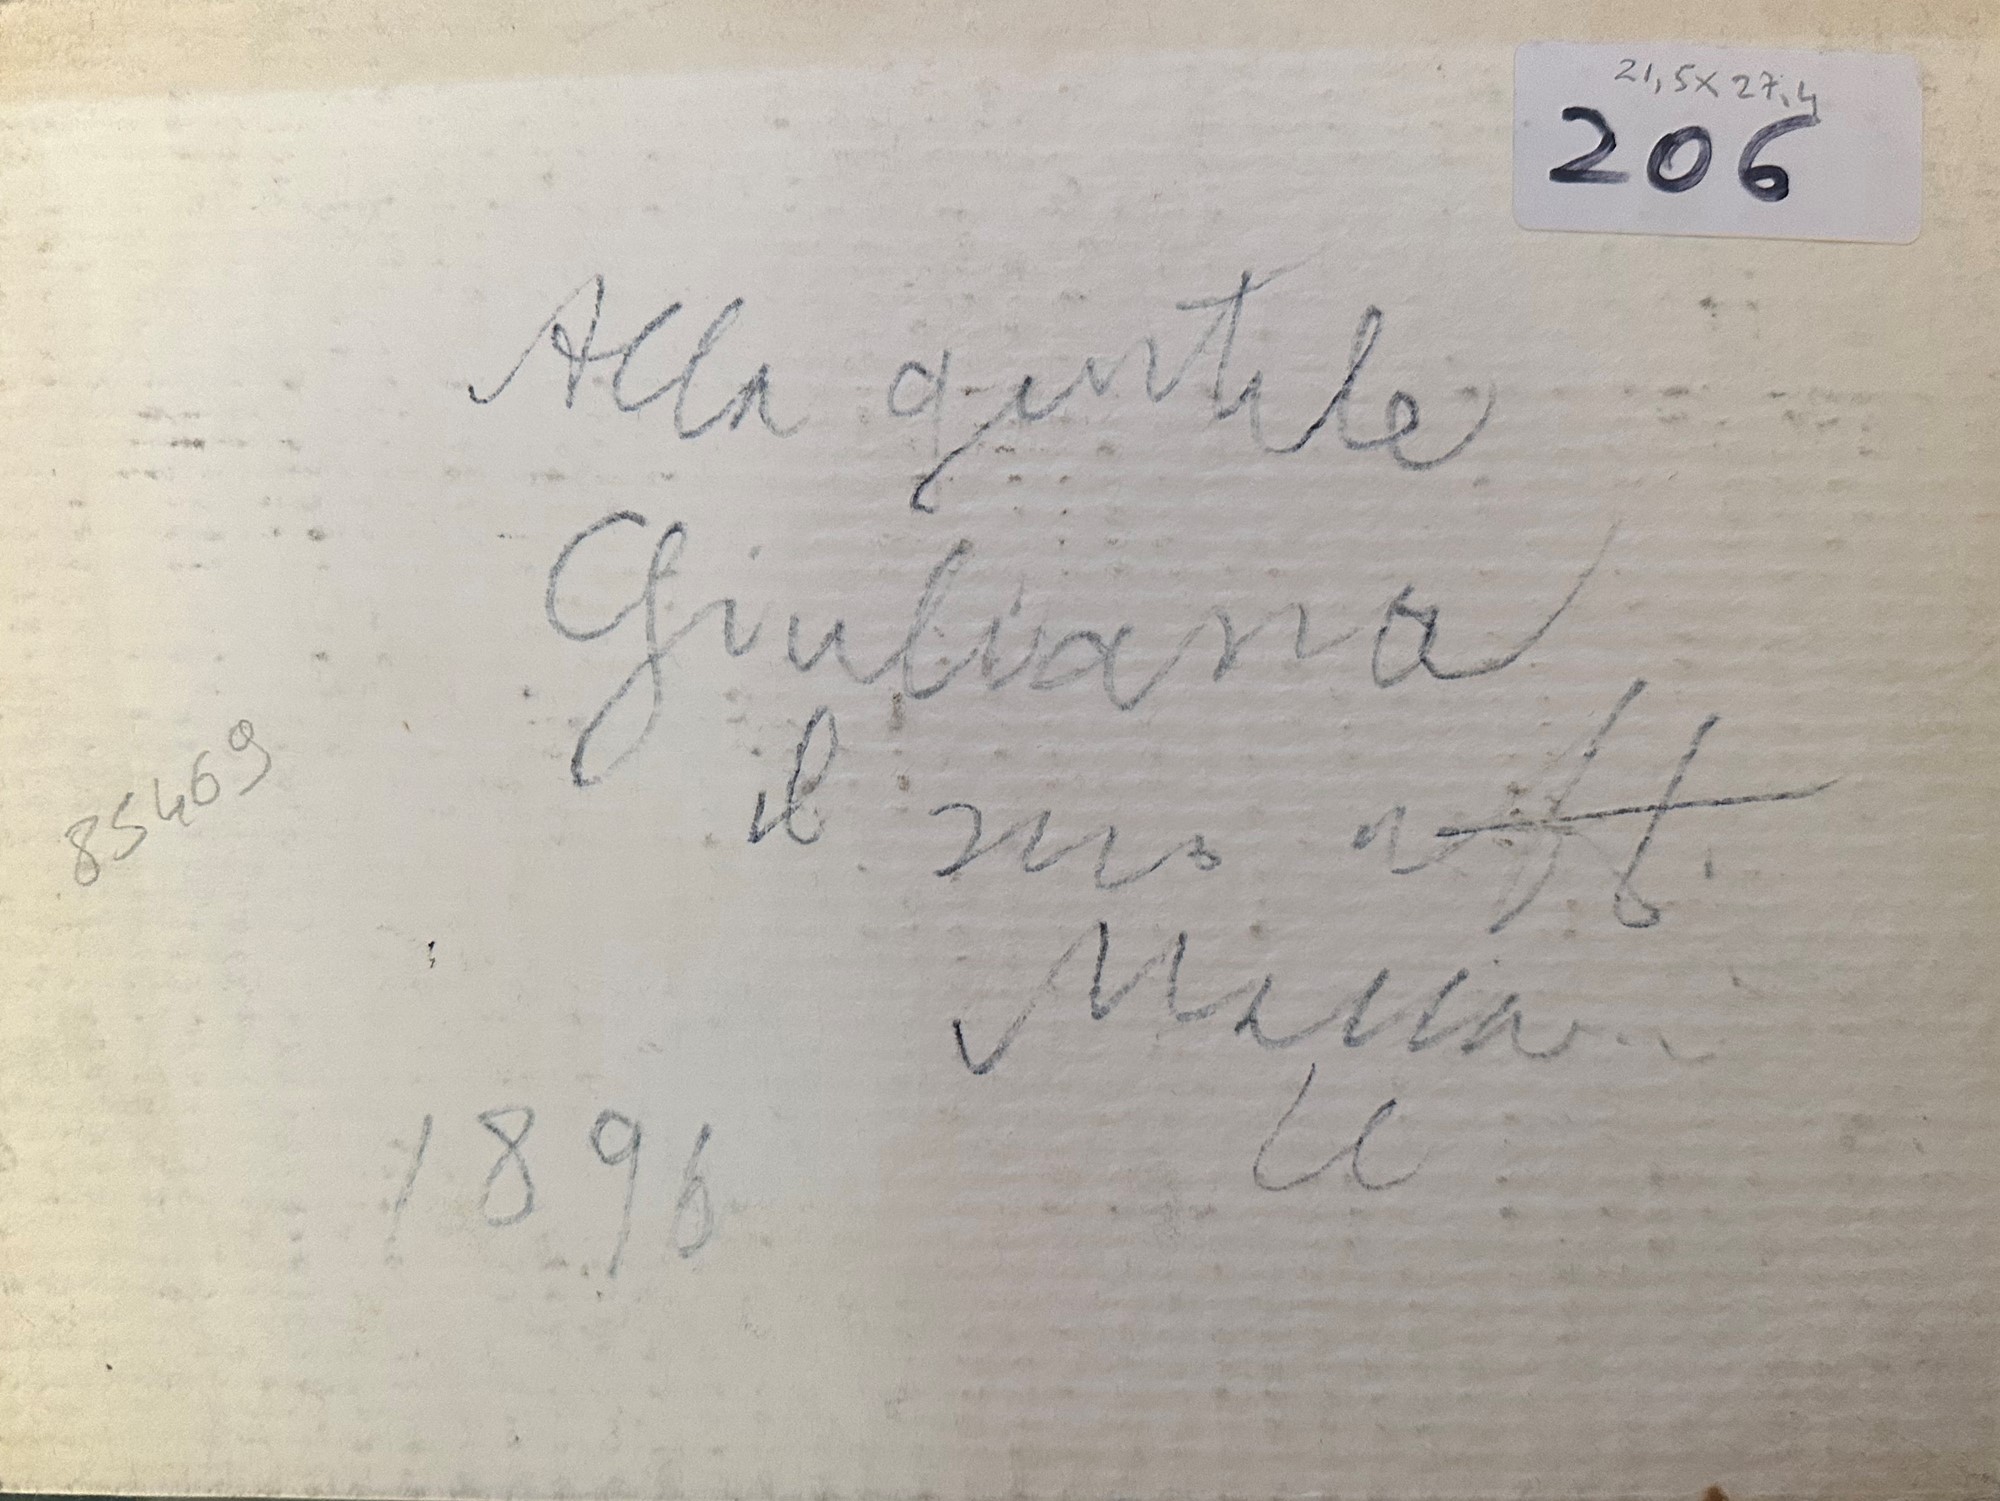 21,5x27,4
206
Alla gentile
Giuliana
il suo aff.
85469
1896